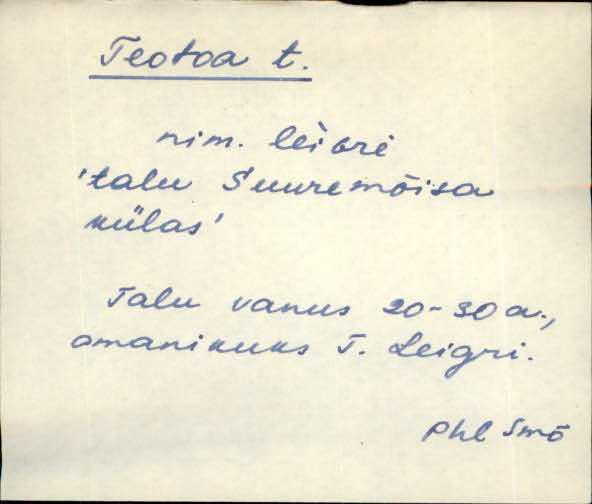 Teotoa t.
nim. lèi̭ɢri
'talu Suuremõisa
külas'
Talu vanus 20-30 a.,
omanikuks T. Leigri.
Phl Smõ